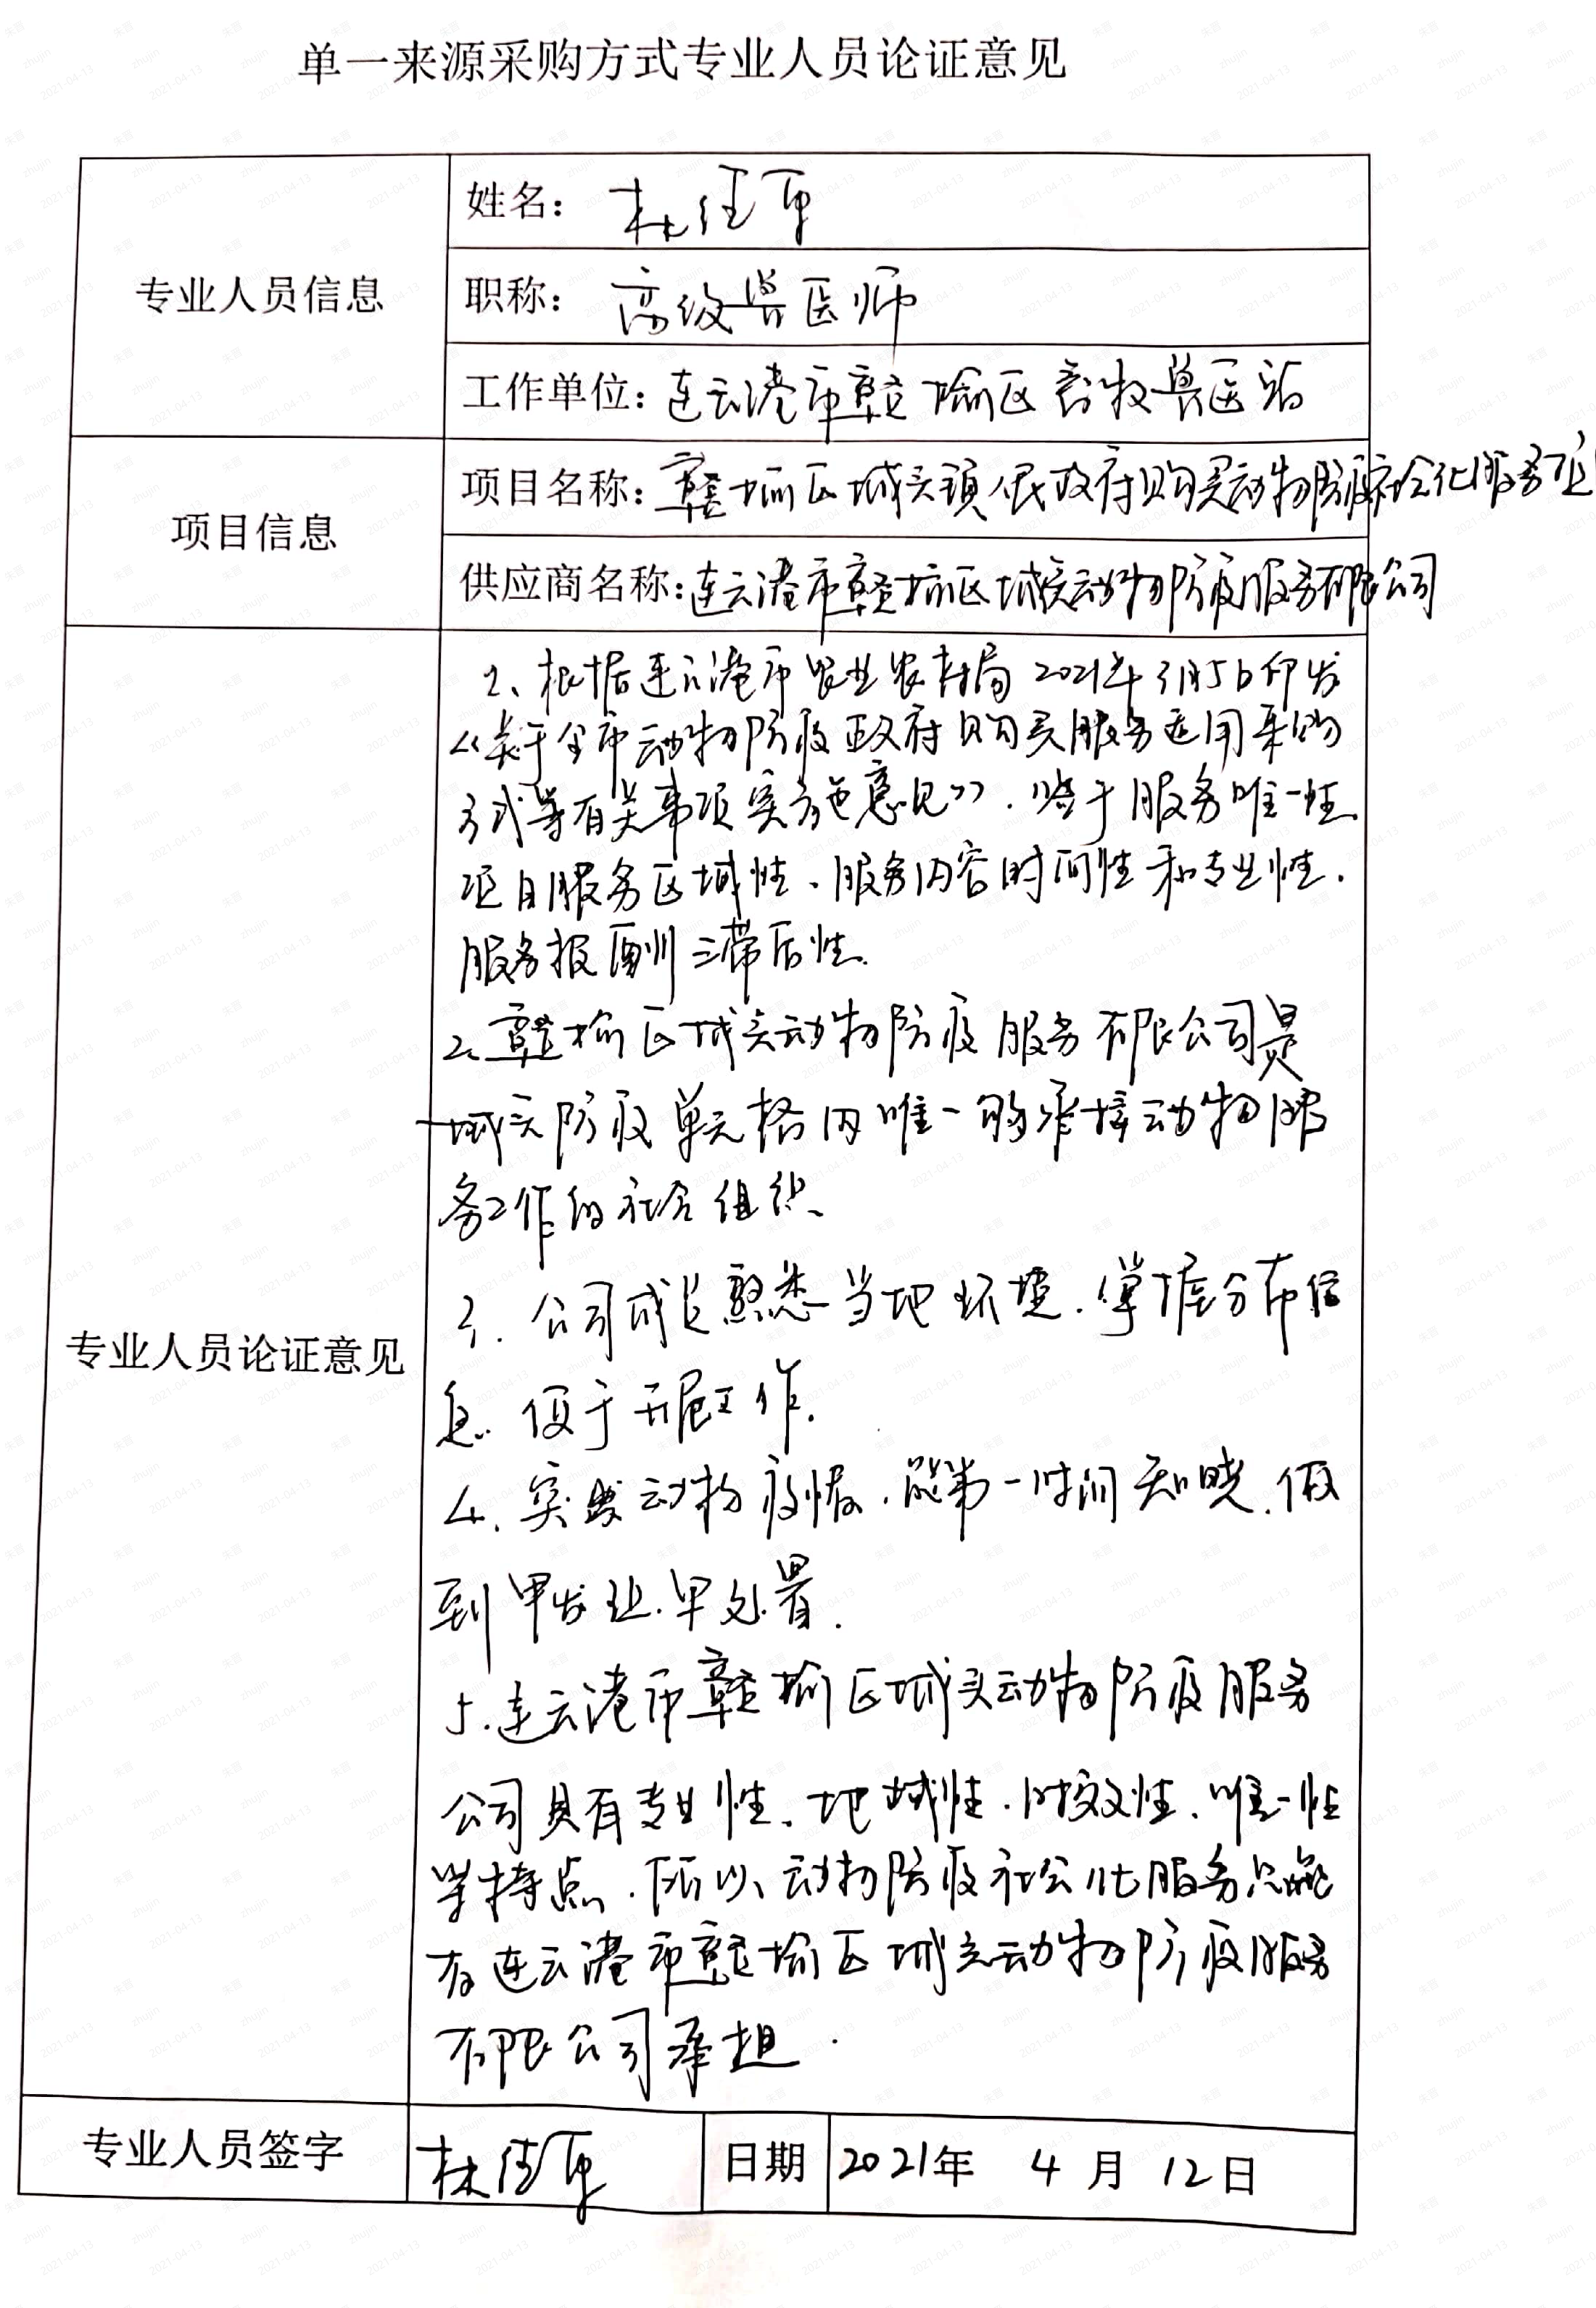 单一来源采购方式专业人员论证意见
专业人员信息
姓名：林佳军
职称：高级兽医师
工作单位：连云港市赣榆区畜牧兽医站
项目信息
项目名称：赣榆区城头镇人民政府购买动物防疫社会化服务项
供应商名称：连云港市赣榆区城头动物防疫服务有限公司
专业人员论证意见
1、根据连云港市农业农村局2021年3月5日印发
《关于全市动物防疫政府购买服务适用采购
方式等有关事项实施意见》.鉴于服务唯一性
项目服务区域性、服务内容时间性和专业性.
服务报酬滞后性.
2、赣榆区城头动物防疫服务有限公司是
城头防疫单元格内唯一的承接动物服
务工作的社会组织、
3.公司成员熟悉当地环境.掌握分布信
息.便于开展工作.
4.突发动物疫情.能第一时间知晓.做
到早发现.早处置.
5.连云港市赣榆区城头动物防疫服务
公司具有专业性、地域性.时效性、唯一性
等特点.所以、动物防疫社会化服务只能
有连云港市赣榆区城头动物防疫服务
有限公司承担.
专业人员签字 林佳军 日期 2021年 4月 12日
朱晋
zhujin
2021-04-13